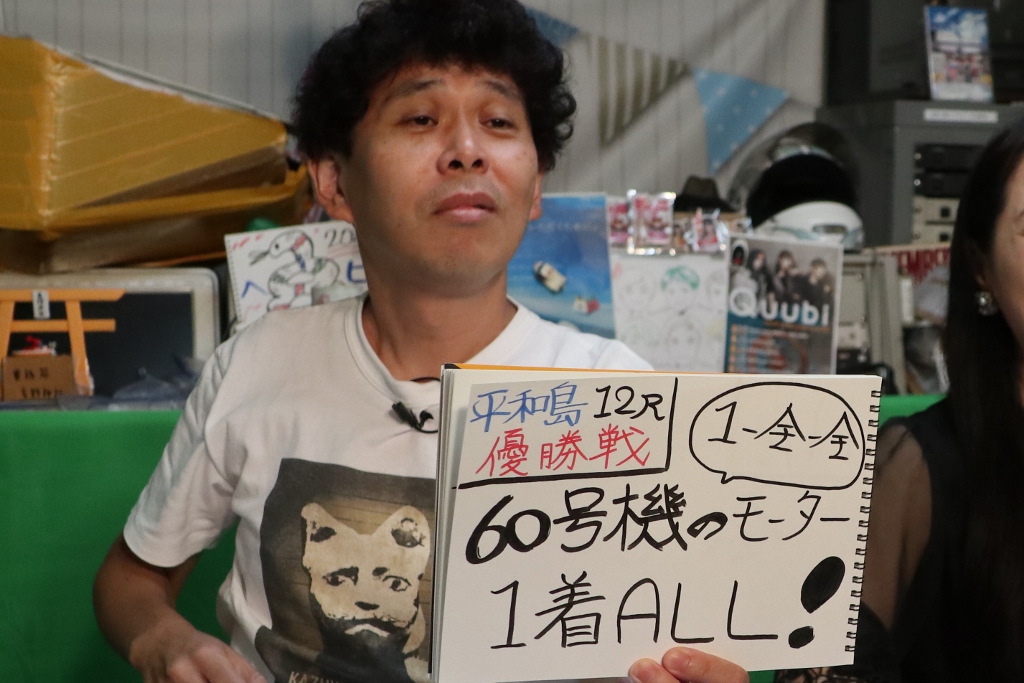 平和島 12R
優勝戦
1-全-全
60号機のモーター
1着ALL!
Quubi
ヘビ